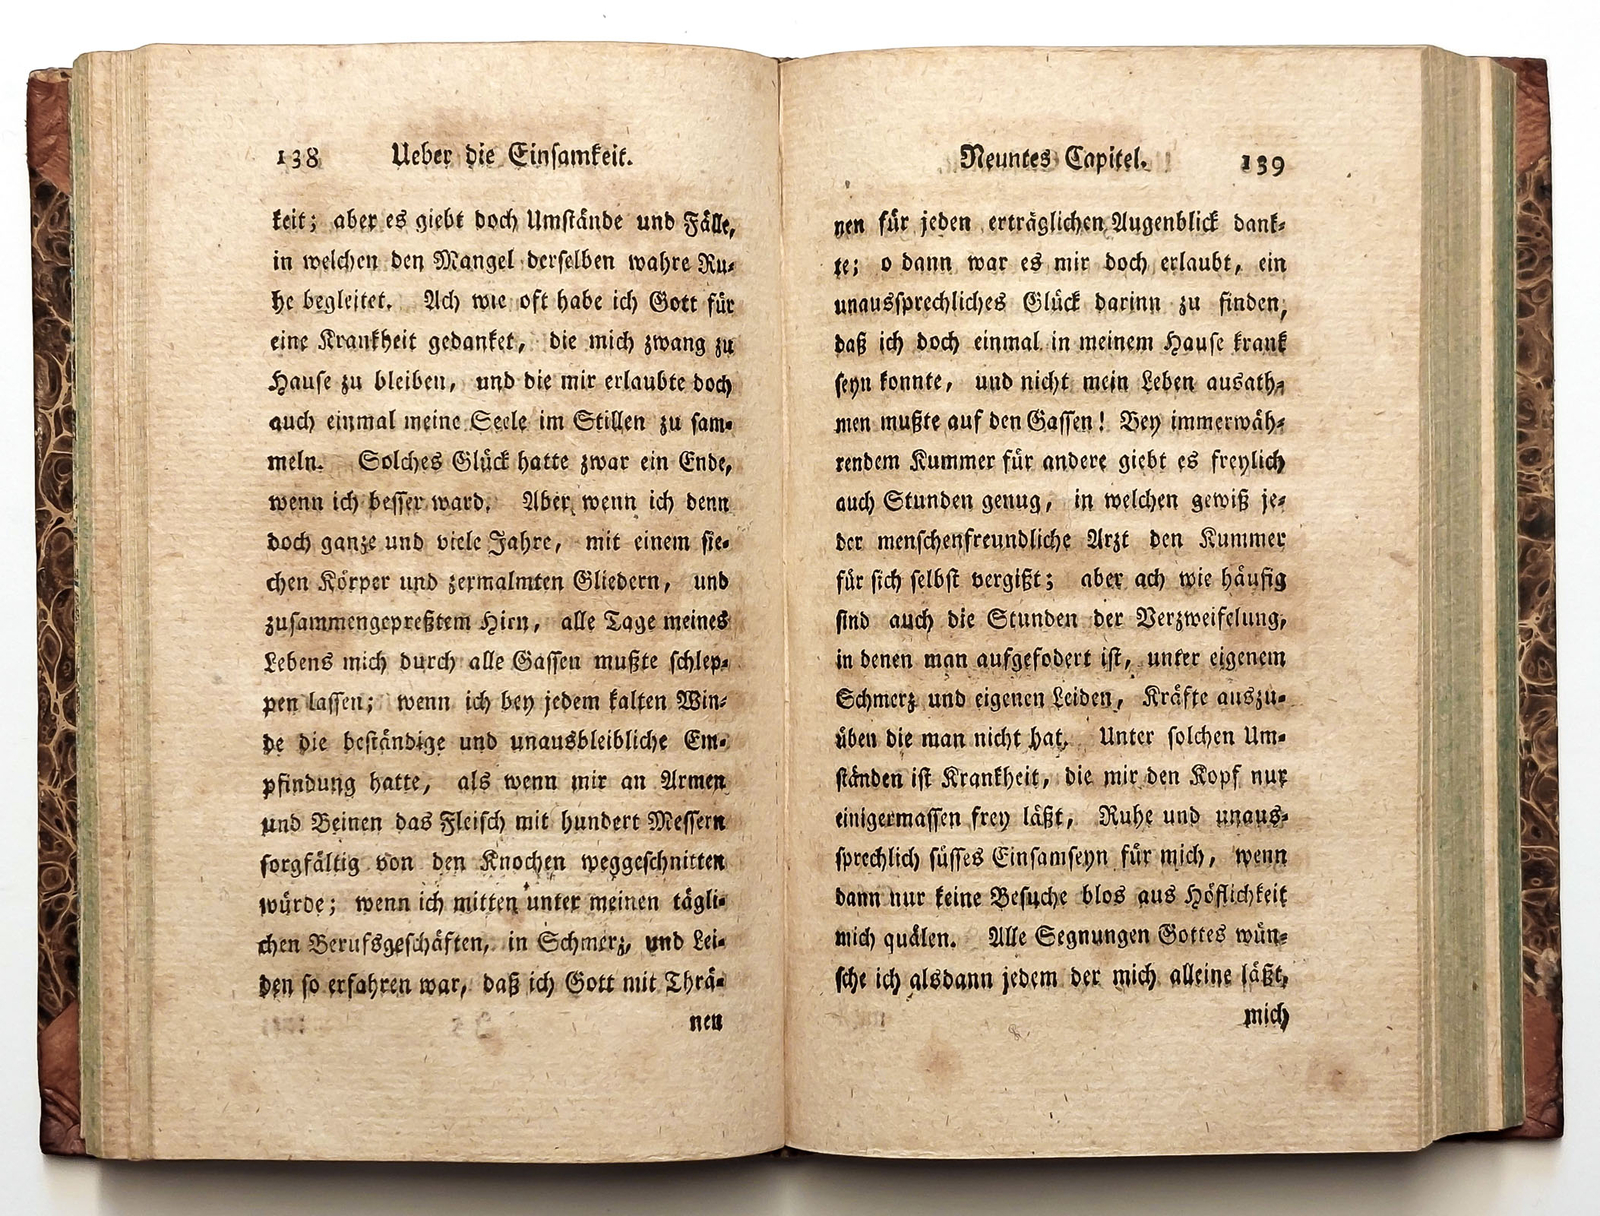 138 Ueber die Einsamkeit.
keit; aber es giebt doch Umstände und Fälle,
in welchen den Mangel derselben wahre Ru-
he begleitet. Ach wie oft habe ich Gott für
eine Krankheit gedanket, die mich zwang zu
Hause zu bleiben, und die mir erlaubte doch
auch einmal meine Seele im Stillen zu sam-
meln. Solches Glück hatte zwar ein Ende,
wenn ich besser ward. Aber wenn ich denn
doch ganze und viele Jahre, mit einem sie-
chen Körper und zermalmten Gliedern, und
zusammengepreßtem Hirn, alle Tage meines
Lebens mich durch alle Gassen mußte schlep-
pen lassen; wenn ich bey jedem kalten Win-
de die beständige und unausbleibliche Em-
pfindung hatte, als wenn mir an Armen
und Beinen das Fleisch mit hundert Messern
sorgfältig von den Knochen weggeschnitten
würde; wenn ich mitten unter meinen tägli-
chen Berufsgeschäften, in Schmerz, und Lei-
den so erfahren war, daß ich Gott mit Thrä-
nen
Neuntes Capitel. 139
nen für jeden erträglichen Augenblick dank-
te; o dann war es mir doch erlaubt, ein
unaussprechliches Glück darinn zu finden,
daß ich doch einmal in meinem Hause krank
seyn konnte, und nicht mein Leben ausath-
men mußte auf den Gassen! Bey immerwäh-
rendem Kummer für andere giebt es freylich
auch Stunden genug, in welchen gewiß je-
der menschenfreundliche Arzt den Kummer
für sich selbst vergißt; aber ach wie häufig
sind auch die Stunden der Verzweifelung,
in denen man aufgefodert ist, unter eigenem
Schmerz und eigenen Leiden, Kräfte auszu-
üben die man nicht hat. Unter solchen Um-
ständen ist Krankheit, die mir den Kopf nur
einigermassen frey läßt, Ruhe und unaus-
sprechlich süsses Einsamseyn für mich, wenn
dann nur keine Besuche blos aus Höflichkeit
mich quälen. Alle Segnungen Gottes wün-
sche ich alsdann jedem der mich alleine läßt,
mich